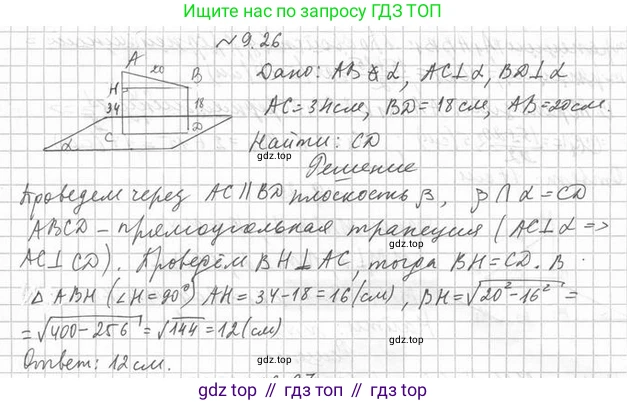 Ищите нас по запросу ГДЗ ТОП
№ 9.26
A
20
B
Дано: AB ⊄ α, AC⊥α, BD⊥α
H
34
18
AC=34см, BD=18см, AB=20см.
C
D
α
Найти: CD
gdz.top
Решение
Проведем через AC∥BD плоскость β, β∩α=CD
ABCD – прямоугольная трапеция (AC⊥α =>
gdz.top
AC⊥CD). Проведём BH⊥AC, тогда BH=CD. В
△ABH (∠H=90°) AH=34-18=16(см), BH=√20²-16² =
gdz.top
=√400-256 =√144 =12(см)
Ответ: 12см.
gdz.top
gdz топ // гдз топ // gdz top